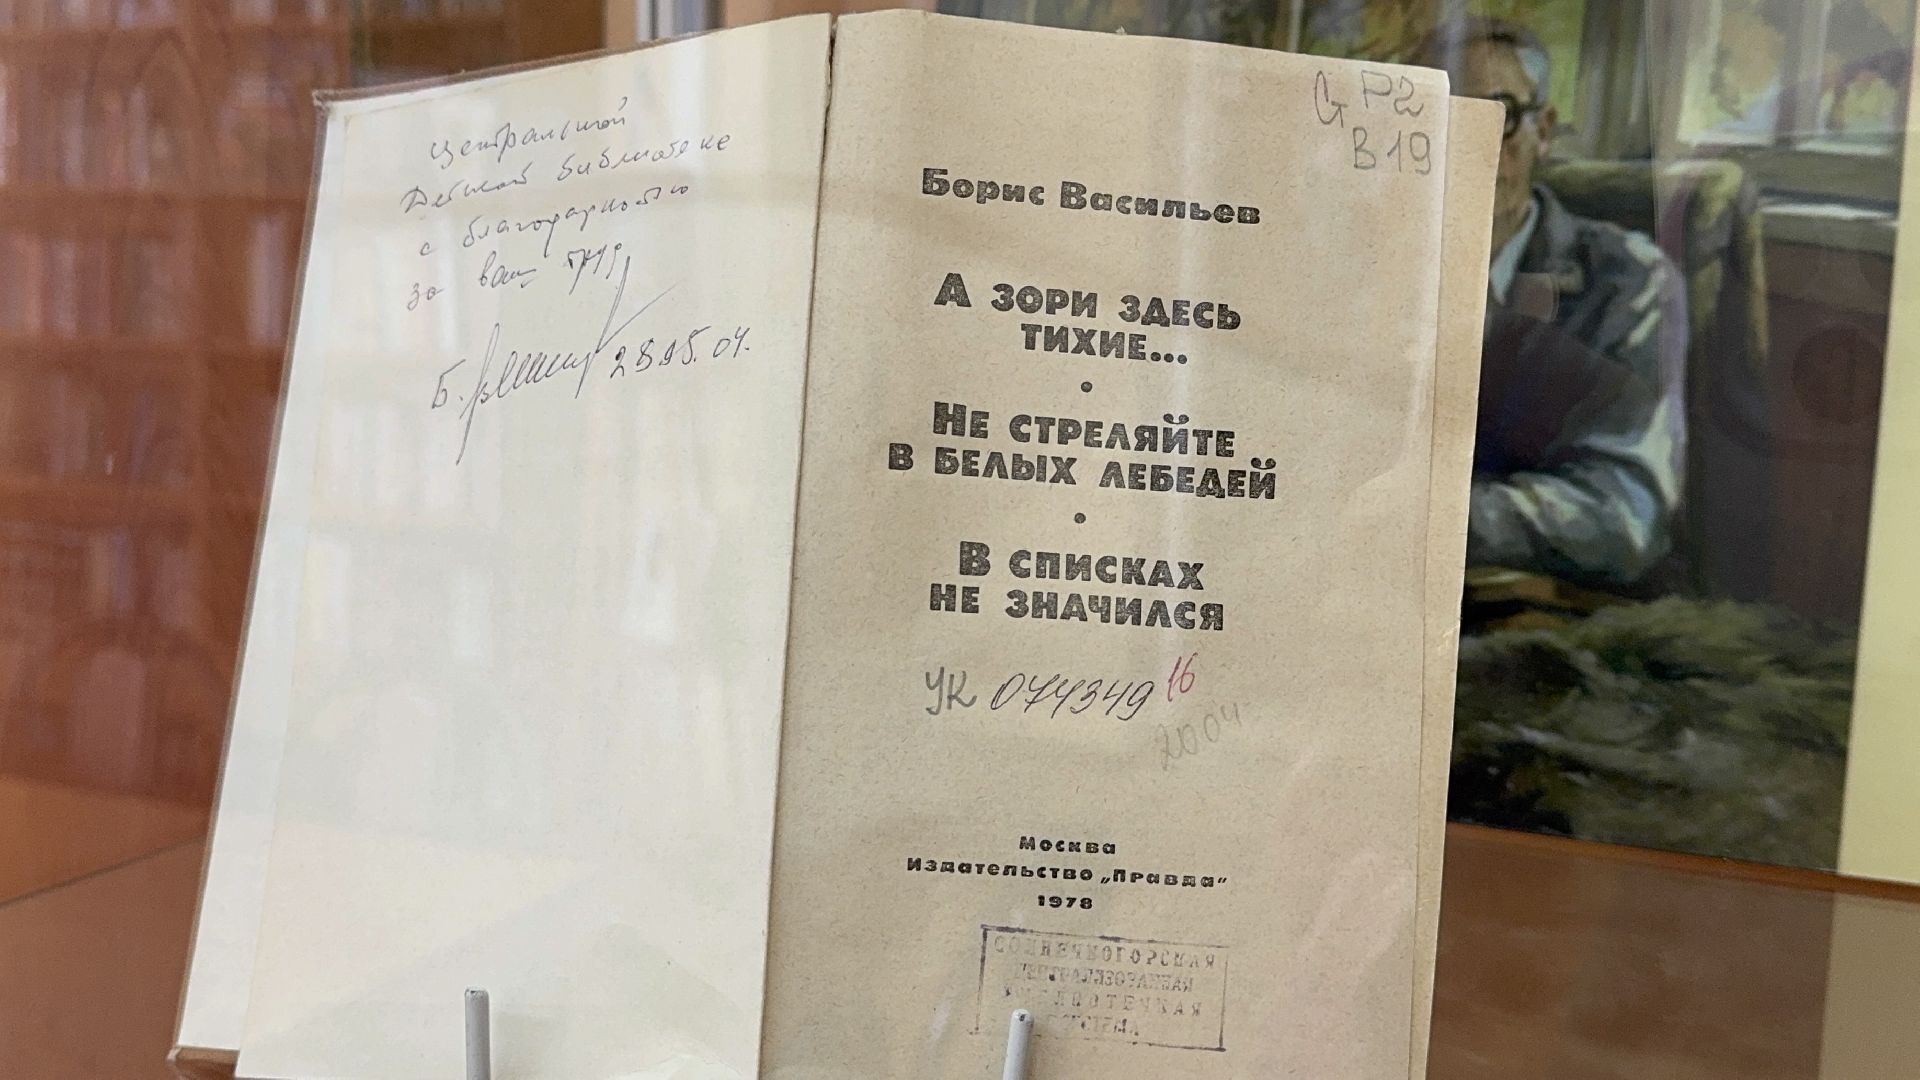 Центральной
Детской библиотеке
с благодарностью
за ваш труд
Б. Васильев 28.05.04.
G P2
В19
Борис Васильев
А ЗОРИ ЗДЕСЬ
ТИХИЕ...
•
НЕ СТРЕЛЯЙТЕ
В БЕЛЫХ ЛЕБЕДЕЙ
•
В СПИСКАХ
НЕ ЗНАЧИЛСЯ
УК 074349 16
2004
Москва
Издательство „Правда“
1978
СОЛНЕЧНОГОРСКАЯ
ЦЕНТРАЛИЗОВАННАЯ
БИБЛИОТЕЧНАЯ
СИСТЕМА